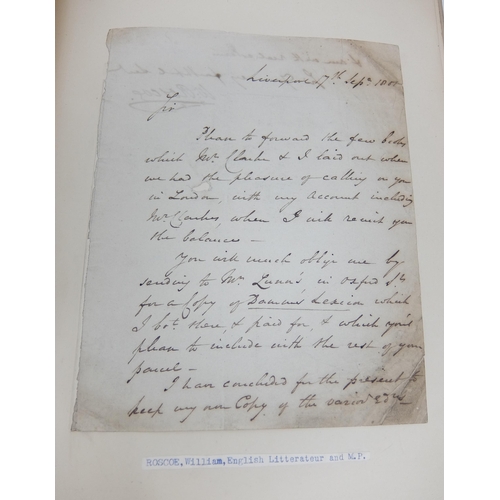 Liverpool 17th Sepr. 180
Sir
Please to forward the few books
which Mr. Clarke & I laid out when
we had the pleasure of calling on you
in London, with my Account including
Mr. Clarke's, when I will remit you
the balances –
You will much oblige me by
sending to Mr. Lunn's in Oxford St.
for a Copy of Damm's Lexicon which
I bot. there, & paid for, & which you'll
please to include with the rest of your
parcel –
I have concluded for the present to
keep my own Copy of the
ROSCOE,William,English Litterateur and M.P.